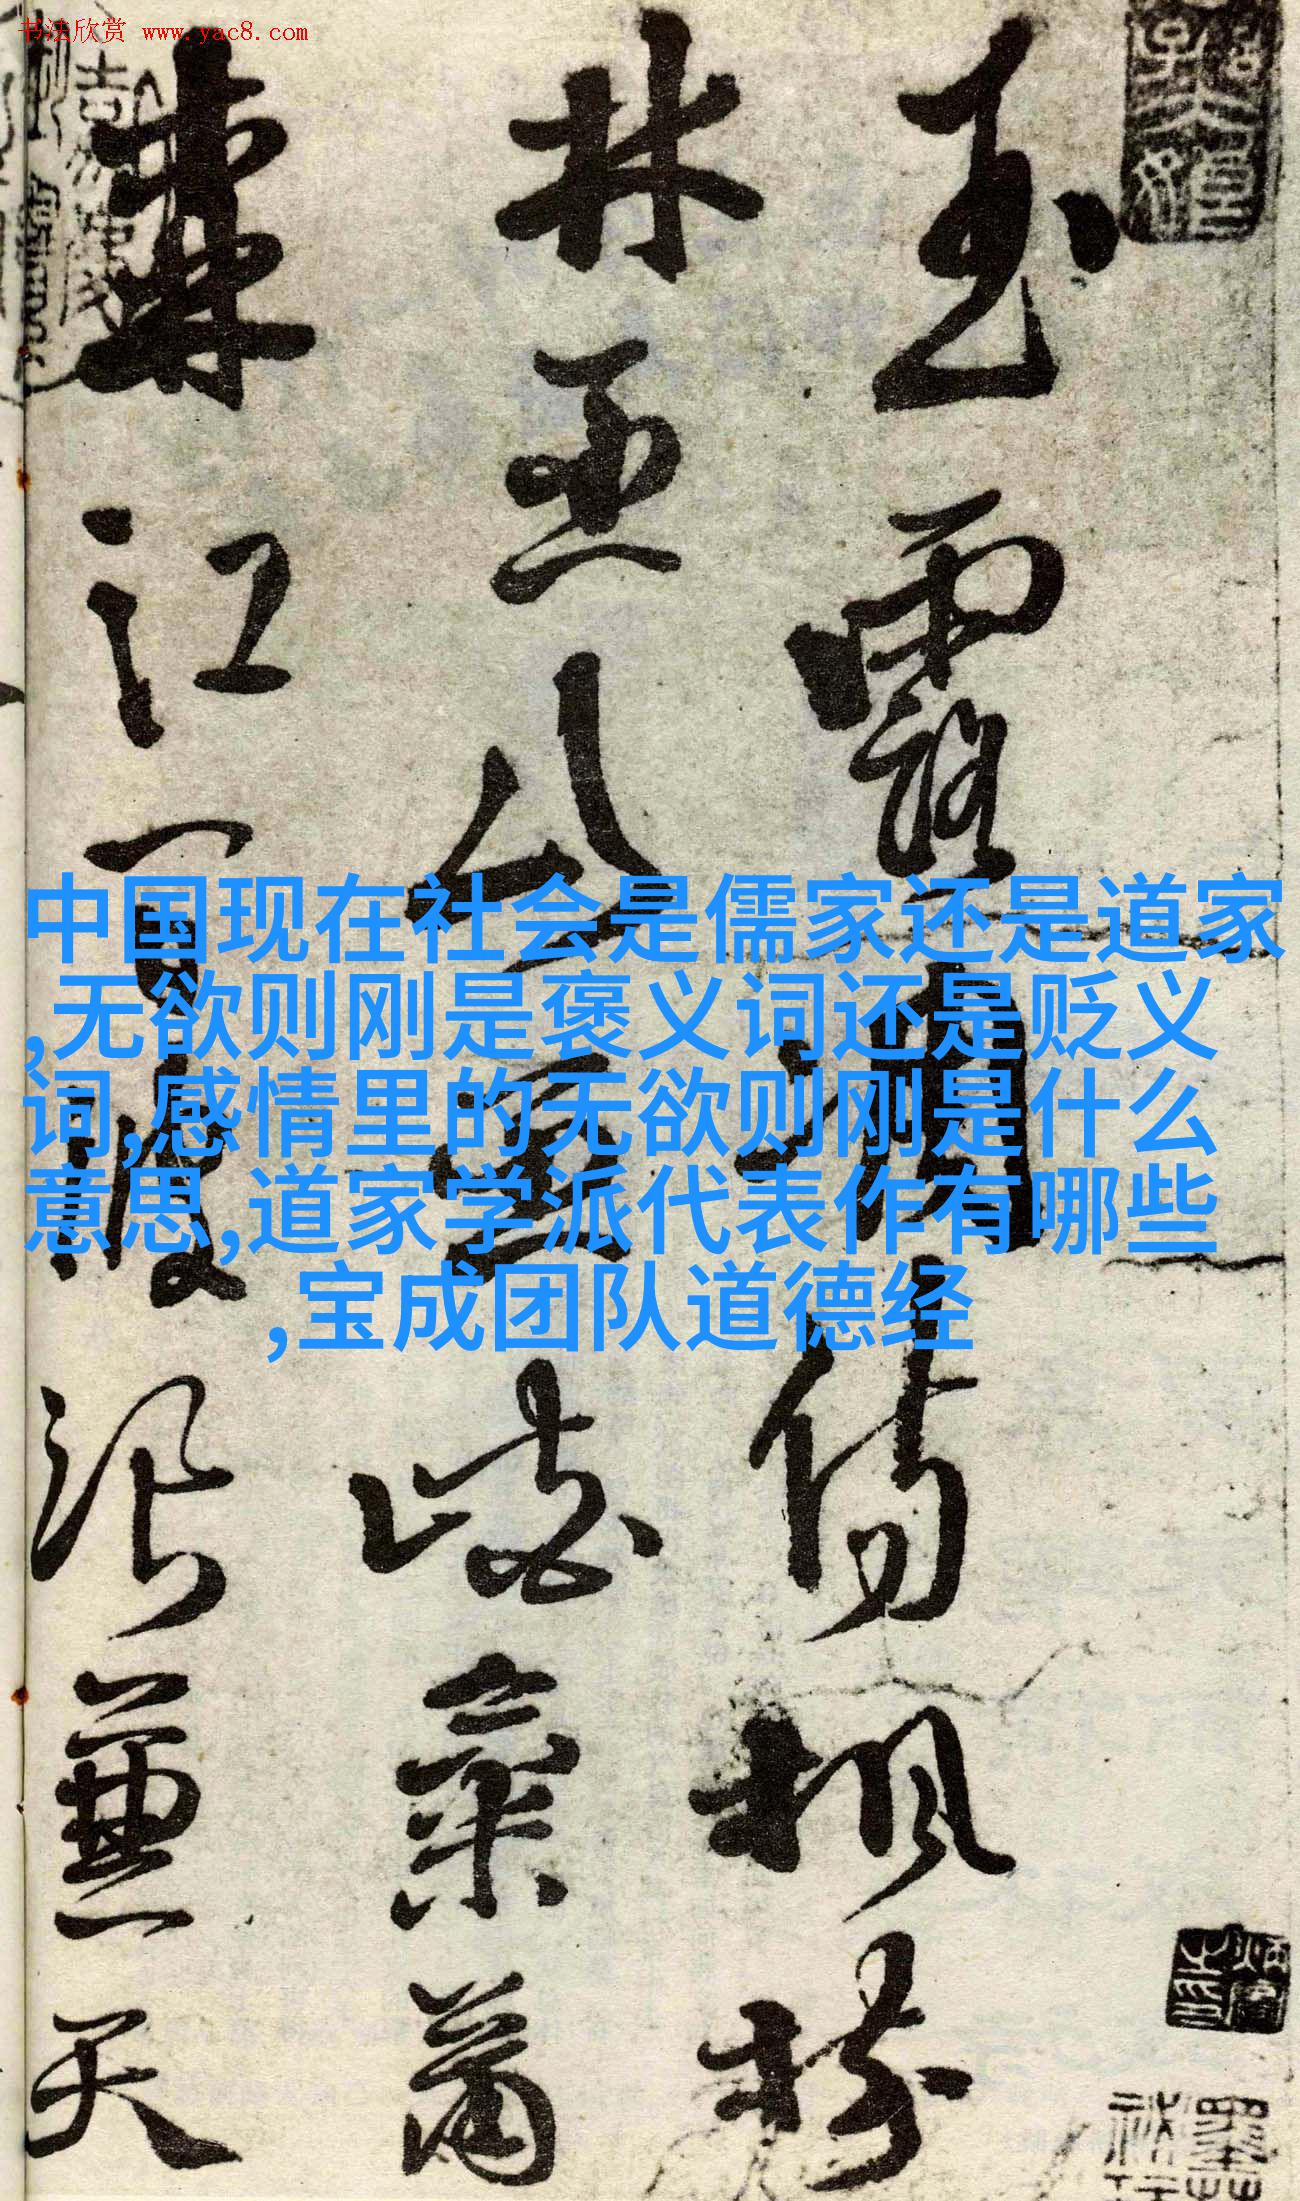 书法欣赏 www.yac8.com
玉露凋傷楓樹
林巫山巫峽氣蕭
森江間波浪兼天
中国现在社会是儒家还是道家
,无欲则刚是褒义词还是贬义
词,感情里的无欲则刚是什么
意思,道家学派代表作有哪些
,宝成团队道德经